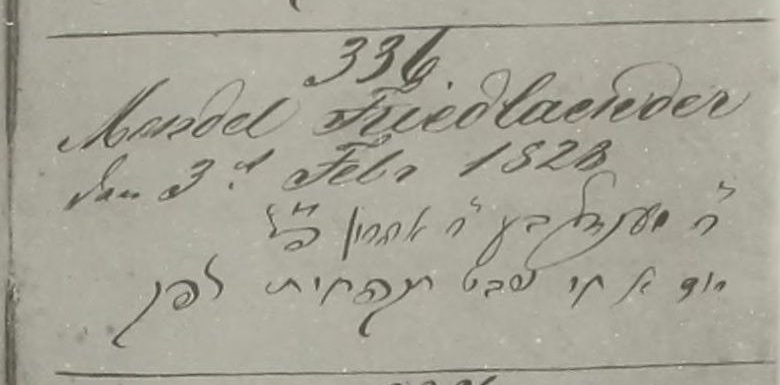 336.
Mendel Friedlaender
den 3.t Febr 1828
ה׳ מענדל בע ה׳ אהרון
יום א חי שבט לפק